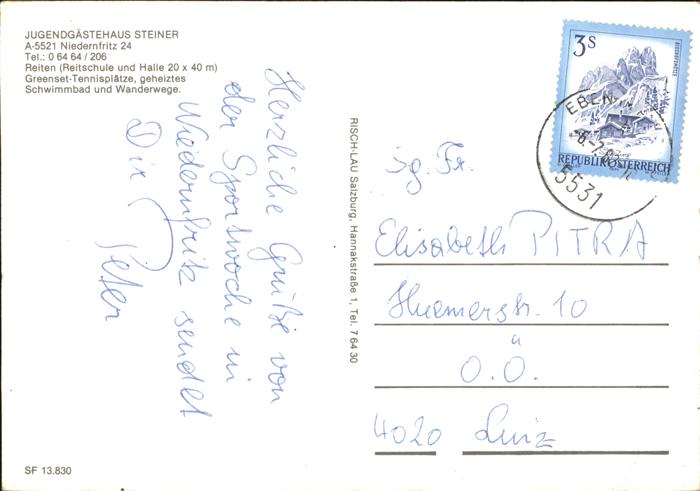 JUGENDGÄSTEHAUS STEINER
A-5521 Niedernfritz 24
Tel.: 0 64 64 / 206
Reiten (Reitschule und Halle 20 x 40 m)
Greenset-Tennisplätze, geheiztes
Schwimmbad und Wanderwege.
Herzliche Grüße von
der Sportwoche in
Niedernfritz sendet
Dir Peter
SF 13.830
RISCH-LAU Salzburg, Hannakstraße 1, Tel. 7 64 30
3S
BISCHOFSMÜTZE
REPUBLIK ÖSTERREICH
EBEN IM
5531
Sg. Fr.
Elisabeth PITRA
Huemerstr. 10
O.Ö.
4020 Linz